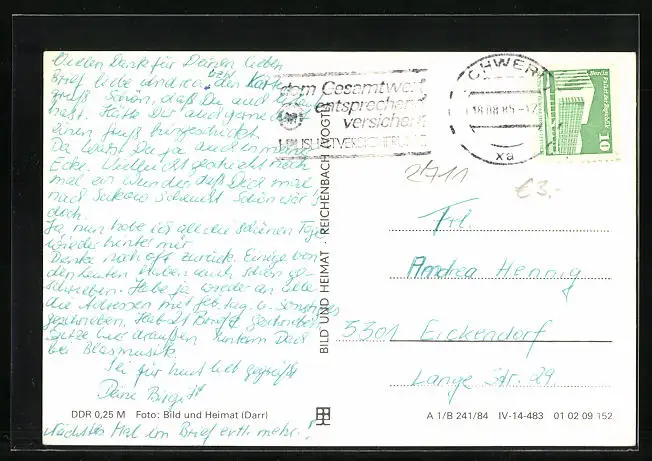 Vielen Dank für Deinen lieben
Brief liebe Andrea bzw. den Karten-
gruß. Schön, daß Du auch
hast. Hätte Dir auch gerne
einen Gruß
Da wärst Du ja auch in meine
Ecke. Vielleicht geschieht noch
mal ein Wunder daß Dich mal
nach Sukow Schön wär's
doch.
Ja nun habe ich all die schönen Tage
wieder hinter mir.
Denke noch oft zurück. Einige von
den Leuten haben auch schon ge-
schrieben. Habe ja wieder an alle
die Adressen mit Geb.tag u. Sonstiges
geschrieben. Hab 21 Briefe geschrieben
Sitze hier draußen hinterm Dad
bei Blasmusik.
Sei für heut lieb gegrüßt
Deine Birgit
DDR 0,25 M Foto: Bild und Heimat (Darr)
Nächstes Mal im Brief evtl. mehr!
BILD UND HEIMAT · REICHENBACH VOGTL
dem Gesamtwert
entsprechend
versichert
CHWERI
18.08.85-12
xa
Berlin
10
2711
€3.-
Frl
Andrea Hennig
5301 Eickendorf
Lange Str. 29.
A 1/B 241/84 IV-14-483 01 02 09 152